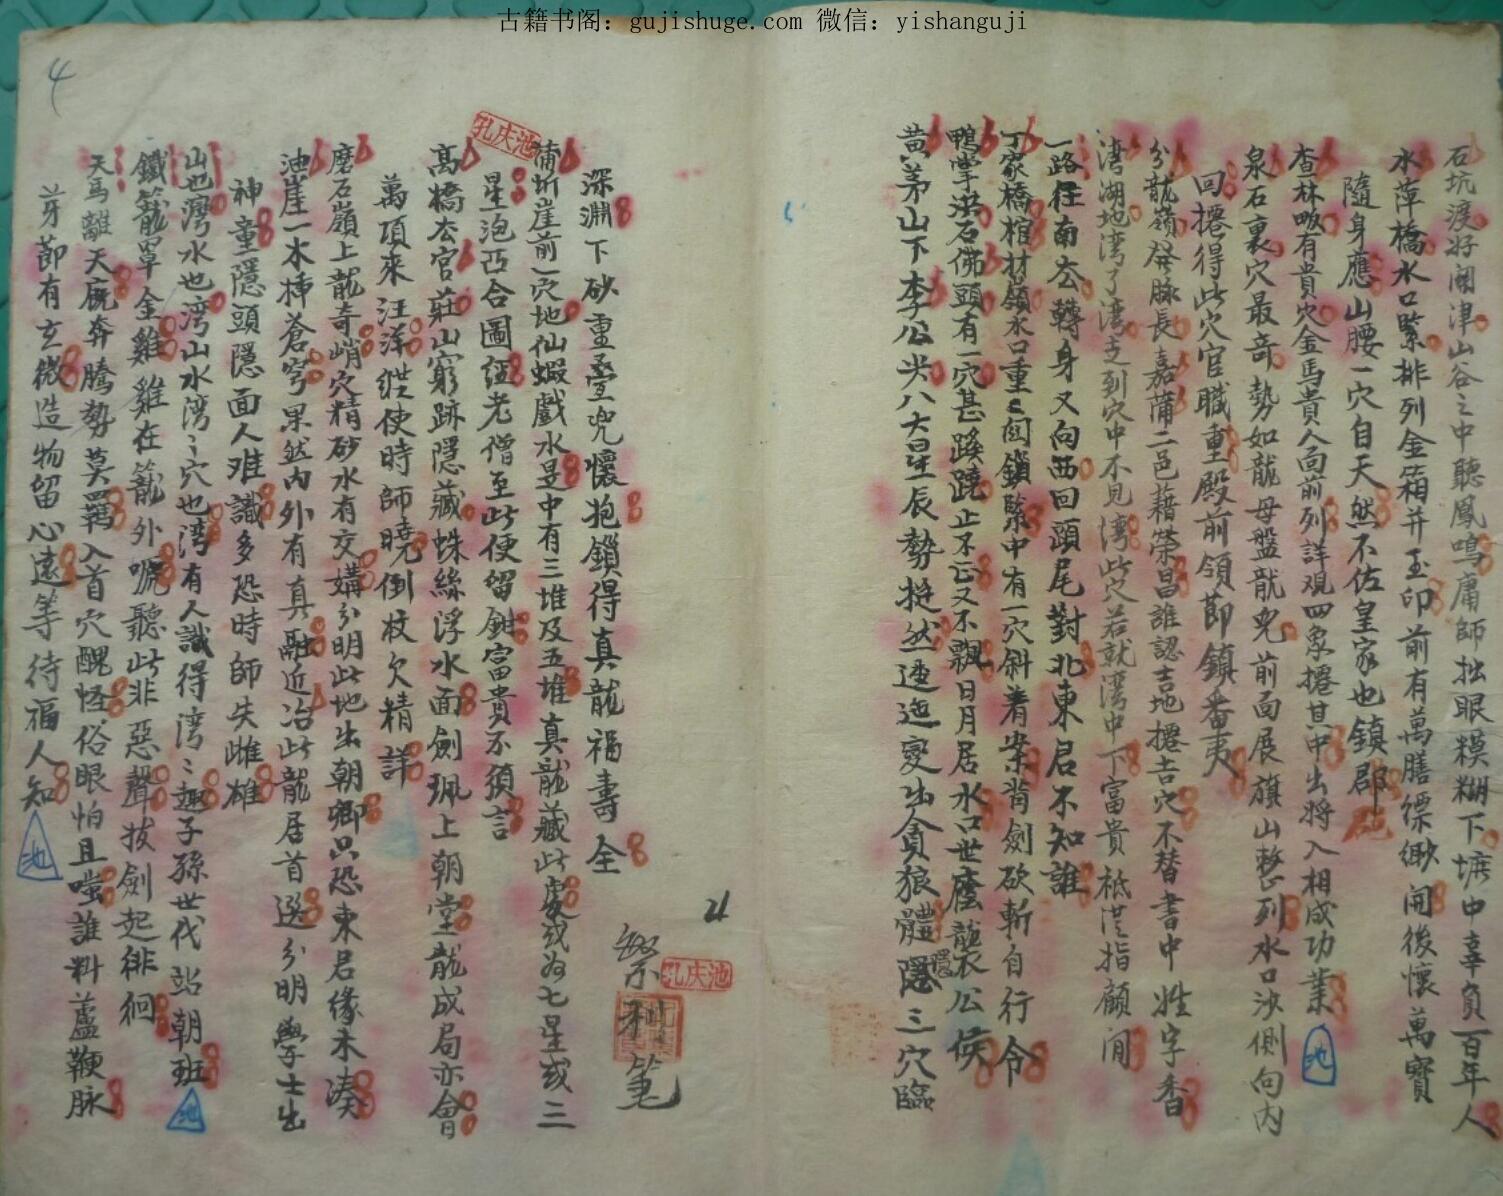 古籍书阁：gujishuge.com 微信：yishanguji
石坑渡好関津山谷之中聽鳳鳴庸師拙眼糢糊下壙中辜負百年人
水萍橋水口緊排列金箱并玉印前有萬膳缥缈開後懷萬寳
隨身應山腰一穴自天然不佐皇家也鎮郡
查林畈有貴穴金馬貴人面前列詳观四象攇其中出將入相成功業
池
泉石裏穴最奇勢如龍母盤龍兒前面展旗山整列水口沙側向内
回攇得此穴官職重殿前領節鎮番夷
分龍嶺発脉長嘉蒲二邑藉榮昌誰認吉地攇吉穴不替書中姓字香
湾湖地湾了湾走到穴中不見湾此穴若就湾中下富貴祗在指顧間
一路往南去轉身又向西回頭尾對北東君不知誰
丁家橋棺材嶺水口重〻関鎖緊中有一穴斜着案背劍砍斬自行令
鴨掌洪石佛頭有一穴甚蹊蹺止不正又不飄日月居水口世廕龍衣公侯
黄茅山下李公尖八大星辰勢挺然迤迤变出貪狼體隱三穴臨
4
深淵下砂重叠兜懷抱鎖得真龍福壽全
蒲圻崖前一穴地仙蝦戲水是中有三堆及五堆真龍藏此處或为七星或三
星泡亞合圖經老僧至此便留鉗富貴不須言
池庆孔
高橋去官莊山窮跡隱藏蛛絲浮水面劍珮上朝堂龍成局亦會
萬頃来汪洋縱使時師曉倒杖欠精詳
磨石嶺上龍奇峭穴精砂水有交媾分明此地出朝卿只恐東君缘未湊
油崖一木揷蒼穹果然内外有真融近冶此龍居首選分明學士出
神童隱頭隱面人难識多恐時師失雌雄
山也湾水也湾山水湾〻穴也湾有人識得湾〻趣子孫世代站朝班
池
鐵籠罩金雞雞在籠外嗁聽此非惡聲拔劍起徘徊
天馬離天廐奔騰勢莫羈入首穴醜怪俗眼怕且嗤誰料蘆鞭脉
芽節有玄微造物留心遠等待福人知
池
4
池庆孔
筆